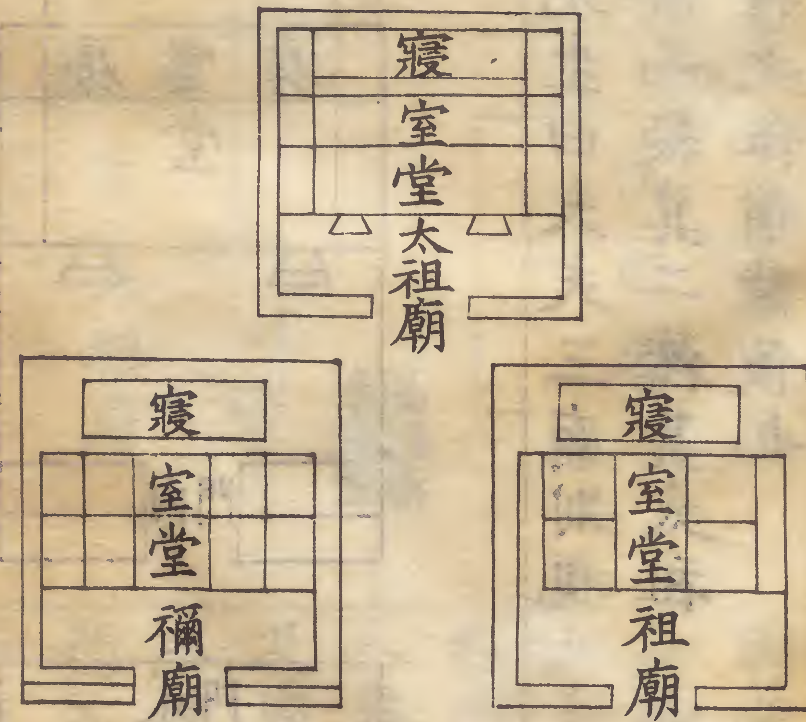 寢室堂太祖廟
寢室堂祖廟
寢室堂禰廟